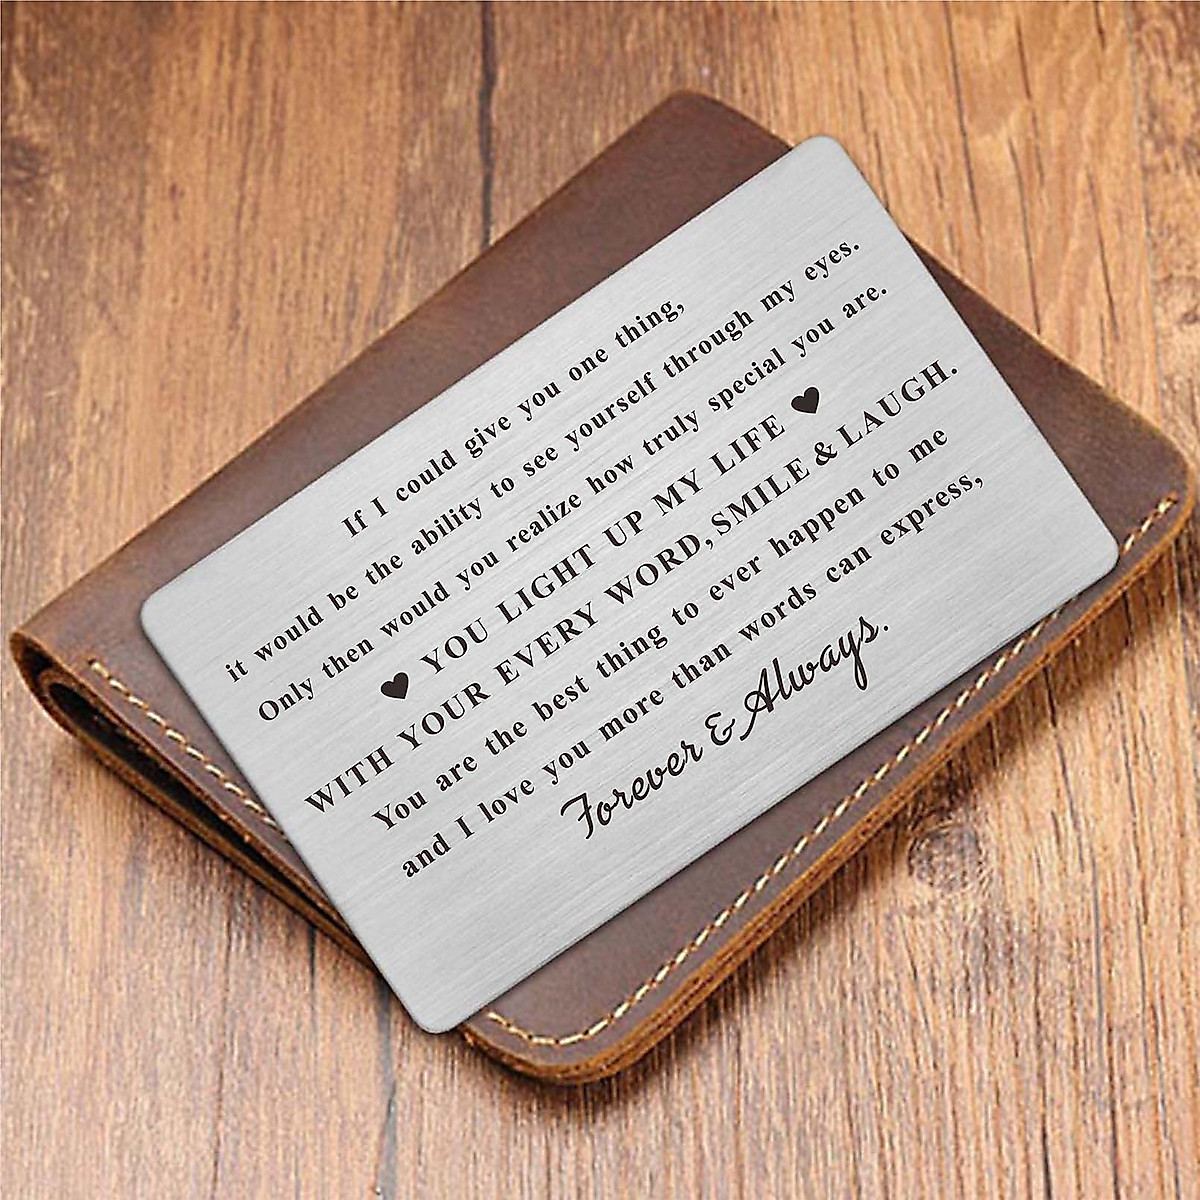 If I could give you one thing,
it would be the ability to see yourself through my eyes.
Only then would you realize how truly special you are.
♥ YOU LIGHT UP MY LIFE ♥
WITH YOUR EVERY WORD, SMILE & LAUGH.
You are the best thing to ever happen to me
and I love you more than words can express,
Forever & Always.